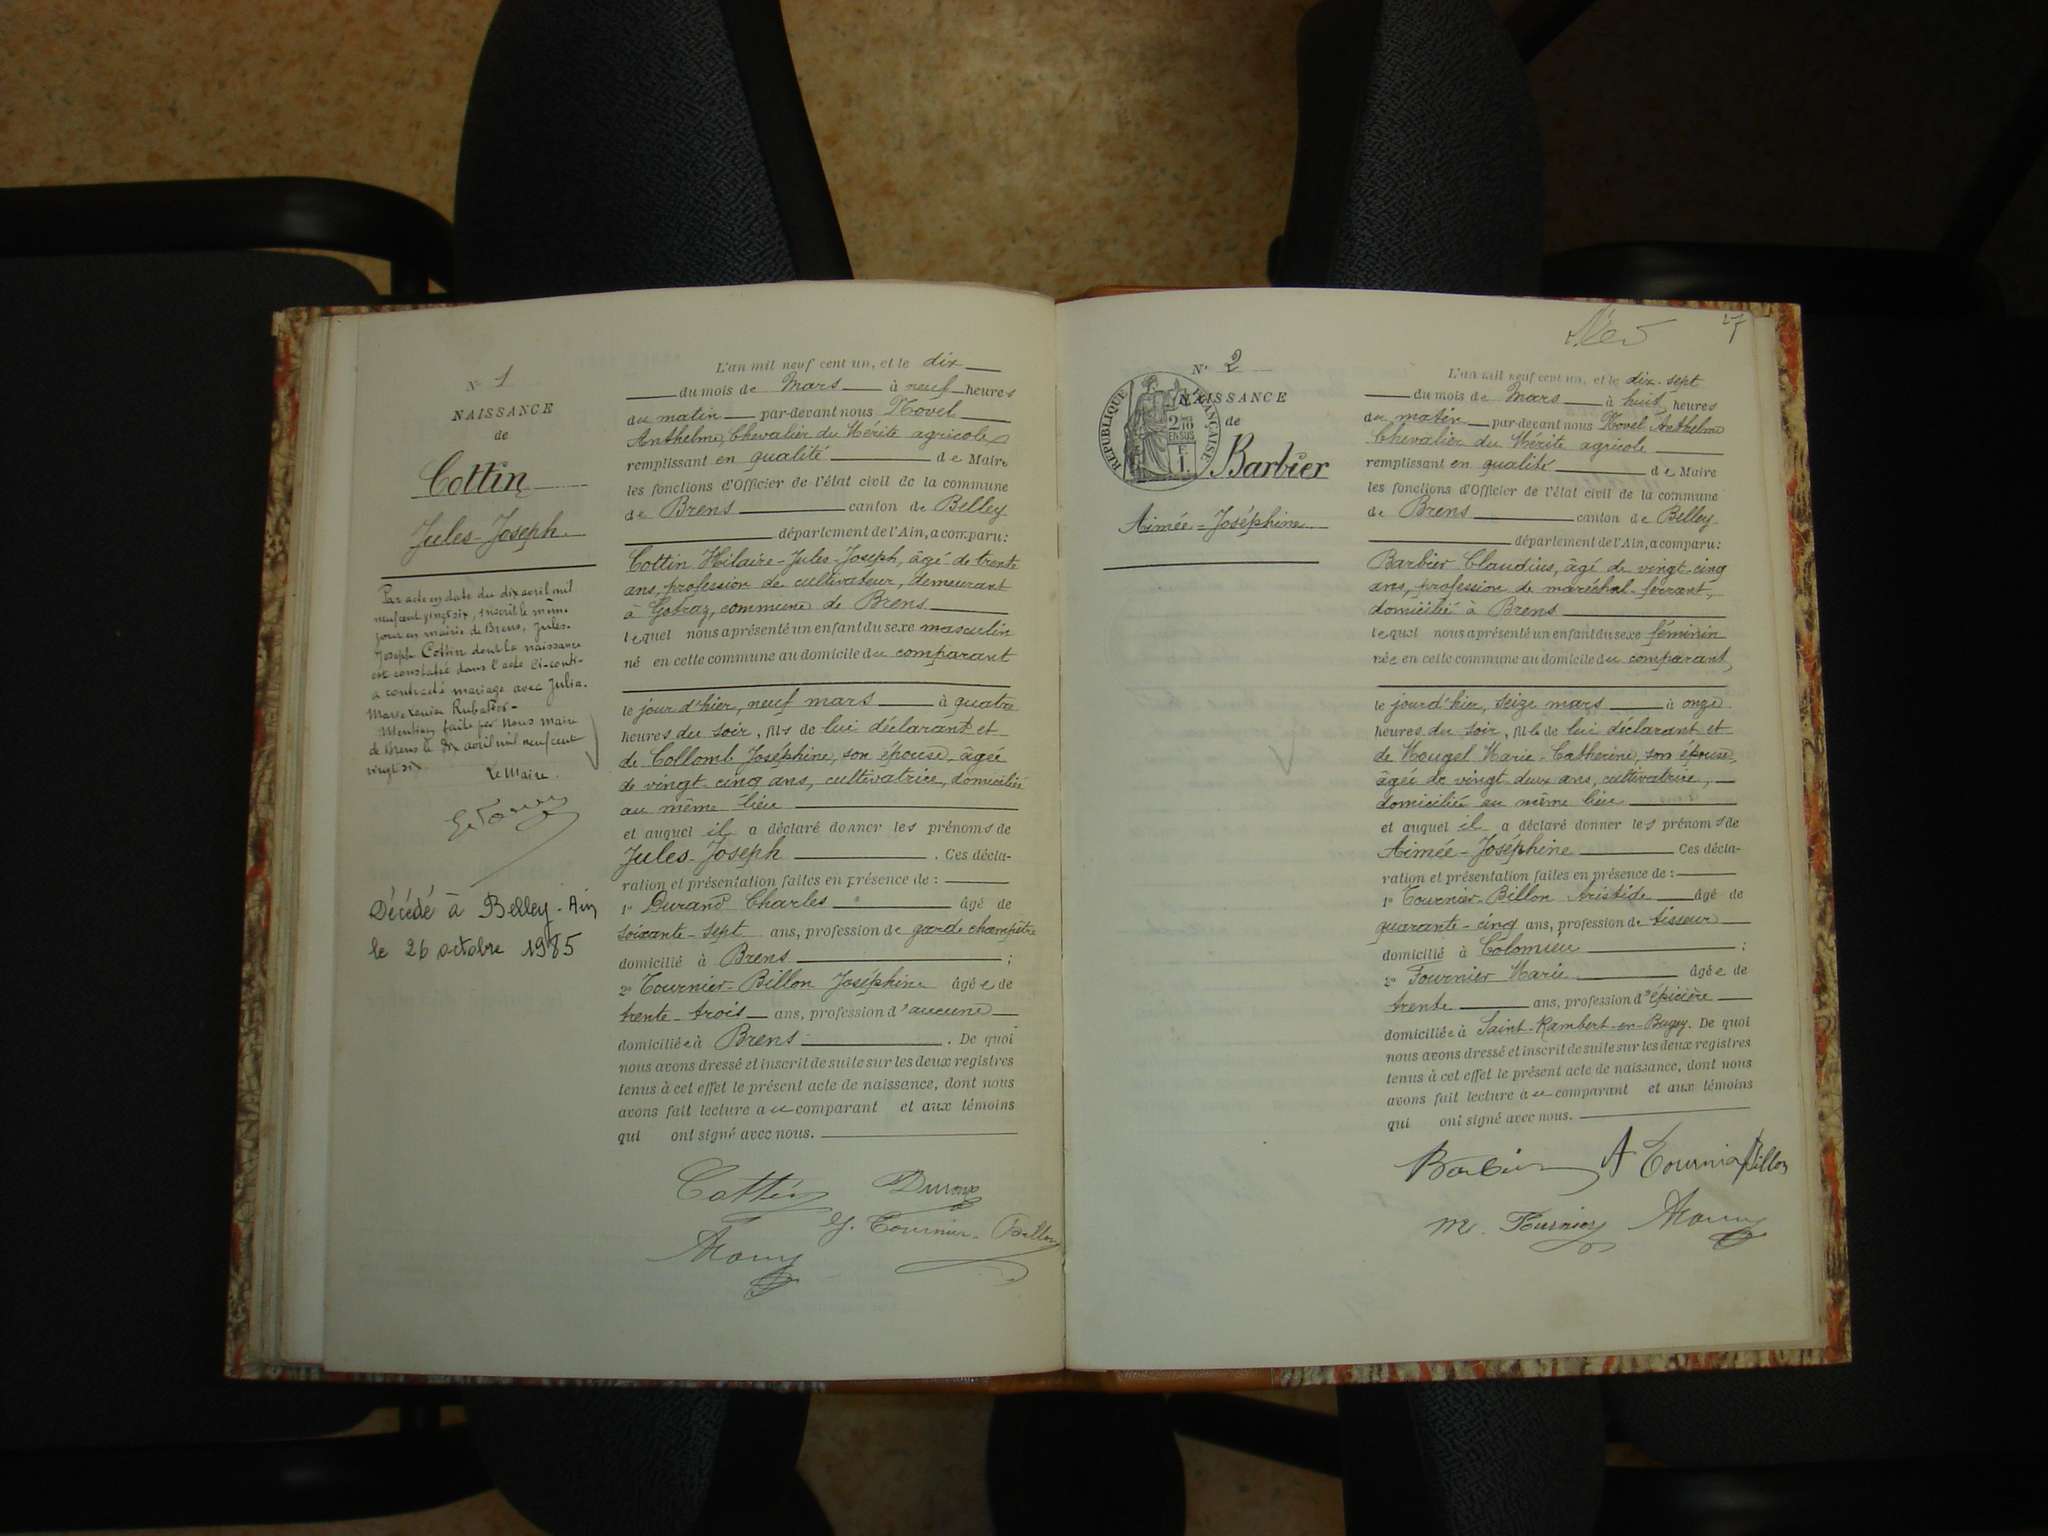 N° 1
NAISSANCE
de
Cottin
Jules-Joseph
Par acte en date du dix avril mil
neuf cent vingt six, inscrit le même
jour en mairie de Brens, Jules-
Joseph Cottin dont la naissance
est constatée dans l'acte ci-contre
a contracté mariage avec Julia
Marie
Mention faite par Nous maire
de Brens le dix avril mil neuf cent
vingt six
Le Maire.
Décédé à Belley-Ain
le 26 octobre 1985
L'an mil neuf cent un, et le dix
du mois de Mars à neuf heures
du matin par-devant nous
Anthelme, Chevalier du Mérite agricole
remplissant en qualité de Maire
les fonctions d'Officier de l'état civil de la commune
de Brens canton de Belley
département de l'Ain, a comparu :
Cottin Hilaire-Jules-Joseph, âgé de trente
ans, profession de cultivateur, demeurant
à commune de Brens
lequel nous a présenté un enfant du sexe masculin
né en cette commune au domicile du comparant
le jour d'hier, neuf mars à quatre
heures du soir, fils de lui déclarant et
de Collomb Joséphine, son épouse, âgée
de vingt-cinq ans, cultivatrice, domiciliée
au même lieu
et auquel il a déclaré donner les prénoms de
Jules-Joseph . Ces décla-
ration et présentation faites en présence de :
1° Durand Charles âgé de
soixante-sept ans, profession de garde champêtre
domicilié à Brens ;
2° Tournier-Billon Joséphine âgée de
trente-trois ans, profession d'aucune
domiciliée à Brens . De quoi
nous avons dressé et inscrit de suite sur les deux registres
tenus à cet effet le présent acte de naissance, dont nous
avons fait lecture au comparant et aux témoins
qui ont signé avec nous.
Cottin Durand
J. Tournier-Billon
27
N° 2
NAISSANCE
de
RÉPUBLIQUE FRANÇAISE
2/10 EN SUS
1 F.
Barbier
Aimée-Joséphine
L'an mil neuf cent un, et le dix-sept
du mois de Mars à huit heures
du matin par-devant nous Anthelme
Chevalier du Mérite agricole
remplissant en qualité de Maire
les fonctions d'Officier de l'état civil de la commune
de Brens canton de Belley
département de l'Ain, a comparu :
Barbier Claudius, âgé de vingt-cinq
ans, profession de maréchal-ferrant,
domicilié à Brens
lequel nous a présenté un enfant du sexe féminin
née en cette commune au domicile du comparant,
le jour d'hier, seize mars à onze
heures du soir, fille de lui déclarant et
de Mougel Marie-Catherine, son épouse,
âgée de vingt deux ans, cultivatrice,
domiciliée au même lieu
et auquel il a déclaré donner les prénoms de
Aimée-Joséphine Ces décla-
ration et présentation faites en présence de :
1° Tournier-Billon Aristide âgé de
quarante-cinq ans, profession de tisseur
domicilié à Colomieu ;
2° Fournier Marie âgée de
trente ans, profession d'épicière
domiciliée à Saint-Rambert-en-Bugey. De quoi
nous avons dressé et inscrit de suite sur les deux registres
tenus à cet effet le présent acte de naissance, dont nous
avons fait lecture au comparant et aux témoins
qui ont signé avec nous.
Barbier A Tournier Billon
m. Furnier